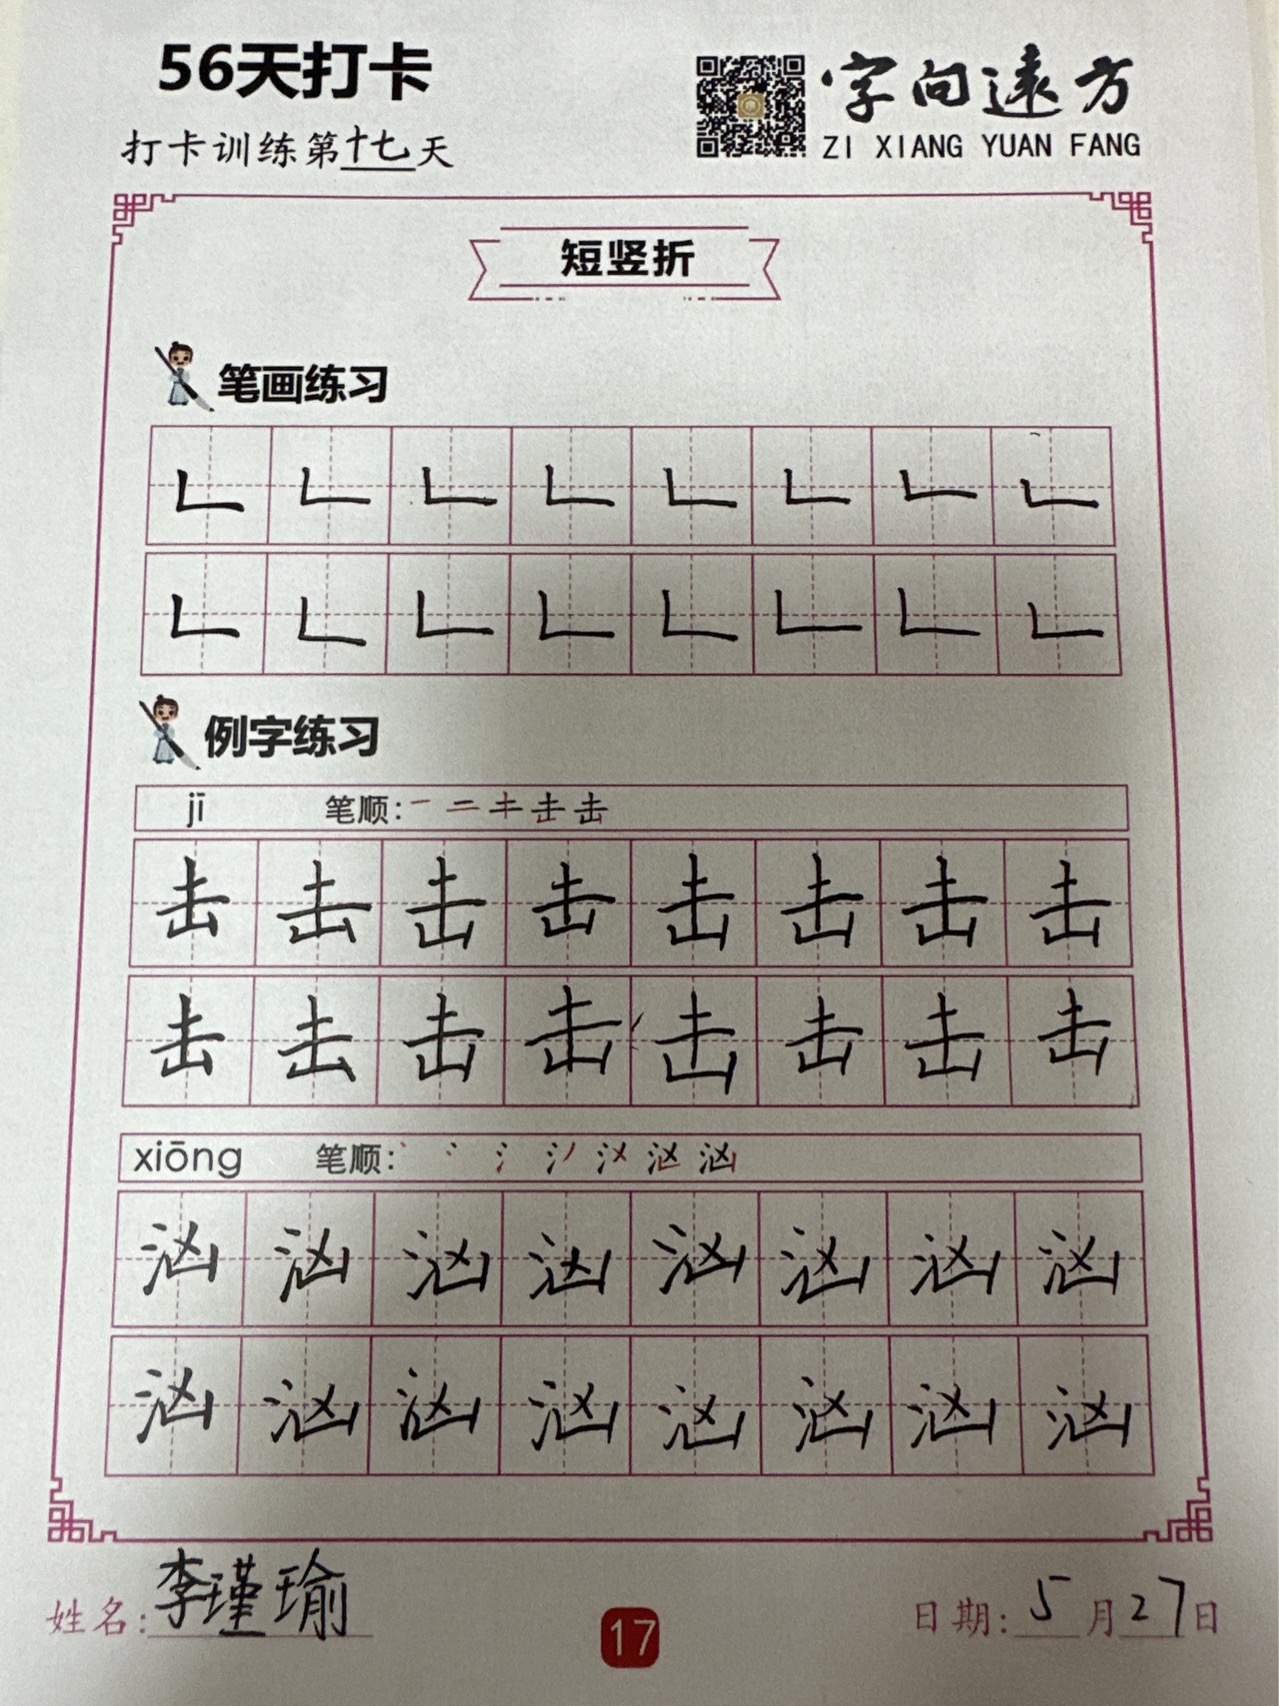 56天打卡
字向远方
打卡训练第十七天
ZI XIANG YUAN FANG
短竖折
笔画练习
𠃊𠃊𠃊𠃊𠃊𠃊𠃊𠃊
𠃊𠃊𠃊𠃊𠃊𠃊𠃊𠃊
例字练习
jī 笔顺: 一 二 キ 击 击
击击击击击击击击
击击击击击击击击
xiōng 笔顺:
汹汹汹汹汹汹汹汹
汹汹汹汹汹汹汹汹
姓名: 李瑾瑜
17
日期: 5月27日